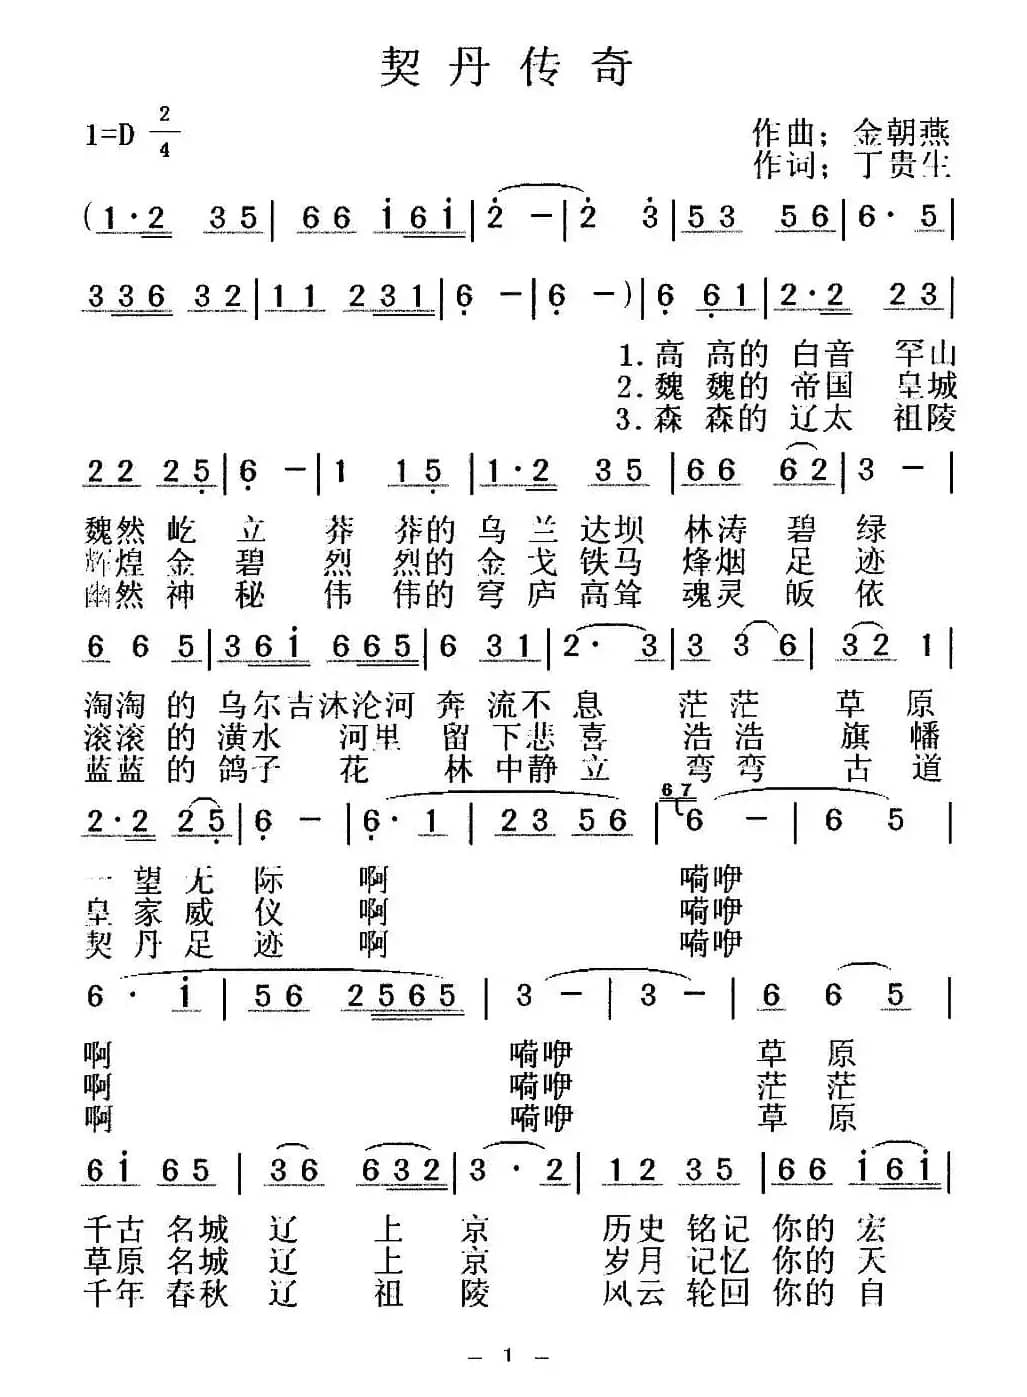 契丹传奇
1=D 2/4
作曲；金朝燕
作词；丁贵生
(1·2 35|66 i6i|2 -|2 3|53 56|6· 5|
336 32|11 231|6 -|6 -)|6 61|2·2 23|
1.高 高的 白音 罕山
2.魏 魏的 帝国 皇城
3.森 森的 辽太 祖陵
22 25|6 -|1 15|1·2 35|66 62|3 -|
魏然 屹 立 莽 莽的 乌 兰 达坝 林涛 碧 绿
辉煌 金 碧 烈 烈的 金 戈 铁马 烽烟 足 迹
幽然 神 秘 伟 伟的 穹 庐 高耸 魂灵 皈 依
6 6 5|36i 665|6 31|2· 3|3 3 6|32 1|
淘淘 的 乌尔吉沐沦河 奔 流不 息 茫茫 草 原
滚滚 的 潢水 河里 留 下悲 喜 浩浩 旗 幡
蓝蓝 的 鸽子 花 林 中静 立 弯弯 古 道
2·2 25|6 -|6· 1|23 56|67 6 -|6 5|
一 望 无 际 啊 嗬咿
皇 家 威 仪 啊 嗬咿
契 丹 足 迹 啊 嗬咿
6 · i|56 2565|3 -|3 -|6 6 5|
啊 嗬咿 草 原
啊 嗬咿 茫 茫
啊 嗬咿 草 原
6i 65|36 632|3 · 2|12 35|66 i6i|
千古 名城 辽 上 京 历史 铭记 你的 宏
草原 名城 辽 上 京 岁月 记忆 你的 天
千年 春秋 辽 祖 陵 风云 轮回 你的 自
- 1 -